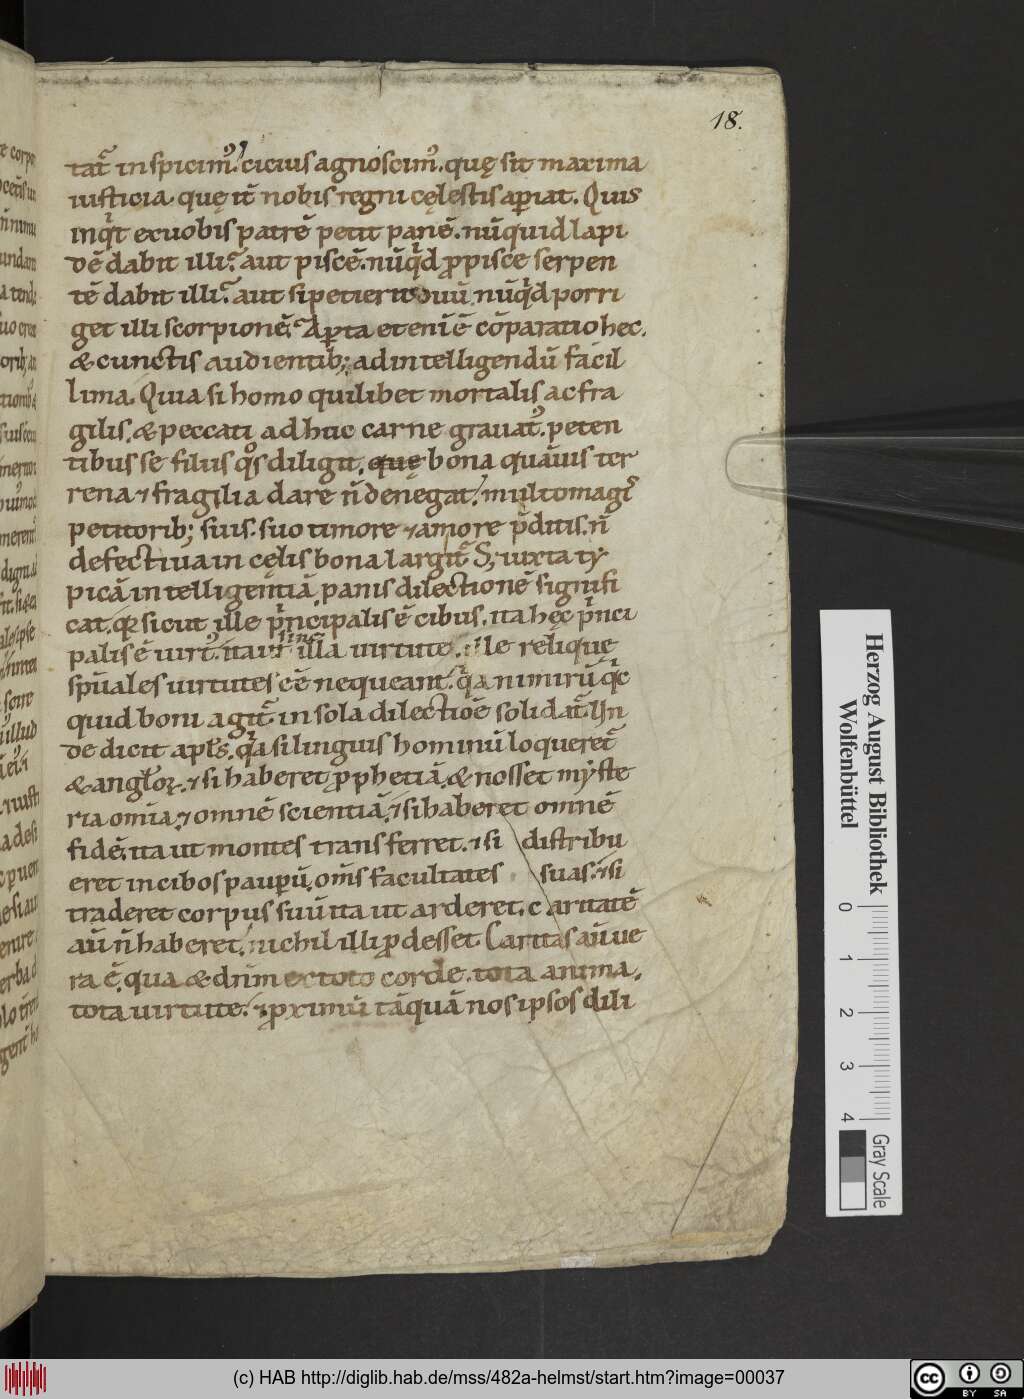 18.
tat̄ inspicim᷒. cicius agnoscim᷒. quę sit maxima
iusticia. quę it̄ nobis regni cęlestis aꝑiat. Quis
inqͥt ex uobis patrē petit panē. nūquid lapi
dē dabit illi? aut piscē. nūqͥd ꝓ pisce serpen
tē dabit illi? aut si petierit ouū. nūqͥd porri
get illi scorpionē? Aꝑta etenī ē cōparatio hec.
& cunctis audientib; ad intelligendū facil
lima. Quia si homo quilibet mortalis ac fra
gilis. & peccati adhuc carne grauat᷒. peten
tibus se filiis qͦs diligit, que bona quāuis ter
rena ⁊ fragilia dare n̄ denegat. multomagͥ
petitorib; suis. suo timore ⁊ amore p̄ditis. n̄
defectiua in cęlis bona largit̄. S; iuxta ty
picā intelligentiā panis dilectionē signifi
cat. qꝛ sicut ille pͥncipalis ē cibus. ita hęc pͥnci
palis ē uirt᷒. ita ut sine illa uirtute. ille relique
sp̄uales uirtutes ēē nequeant. qͥa nimirū qͥc
quid boni agit̄ in sola dilectiōe solidat̄. Un
de dicit apl̄s. qͥa si linguis hominū loqueret̄
& angl̄oꝝ. ⁊ si haberet ꝓphetiā. & nosset myste
ria om̄ia. ⁊ omnē scientiā. ⁊ si haberet omnē
fidē. ita ut montes transferret. ⁊ si distribu
eret in cibos pauperū. om̄s facultates suas. ⁊ si
traderet corpus suū ita ut arderet. caritatē
aū n̄ haberet. nichil illi ꝓdesset. Caritas aū ue
ra ē. qua & dn̄m ex toto corde. tota anima.
tota uirtute. ⁊ ꝓximū tāquā nos ipsos dili
Herzog August Bibliothek
Wolfenbüttel
0 1 2 3 4
Gray Scale
(c) HAB http://diglib.hab.de/mss/482a-helmst/start.htm?image=00037
cc BY SA